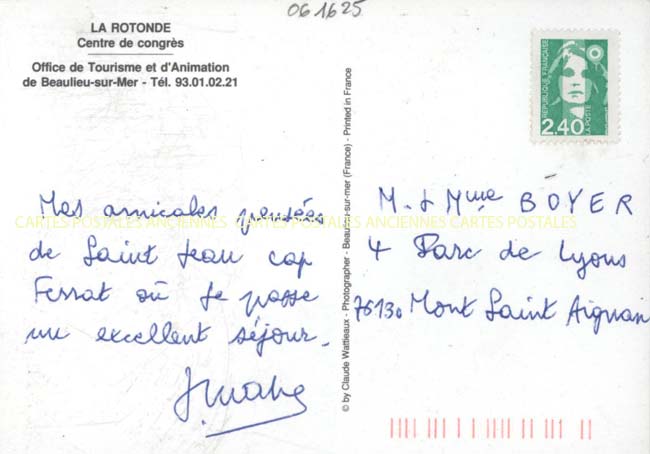 061625
LA ROTONDE
Centre de congrès
Office de Tourisme et d'Animation
de Beaulieu-sur-Mer - Tél. 93.01.02.21
REPUBLIQUE FRANÇAISE
LA POSTE
2,40
Mes amicales pensées
de Saint Jean Cap
Ferrat où je passe
un excellent séjour.
© by Claude Wattieaux - Photographer - Beaulieu-sur-mer (France) - Printed in France
M. & Mme BOYER
4 Parc de Lyons
76130 Mont Saint Aignan
CARTES POSTALES ANCIENNES CARTES POSTALES ANCIENNES CARTES POSTALES ANCIENNES